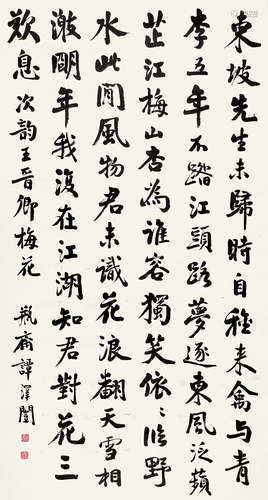 東坡先生未歸時自種來禽與青
李五年不踏江頭路夢逐東風泛蘋
芷江梅山杏為誰容獨笑依〻臨野
水此間風物君未識花浪翻天雪相
激明年我復在江湖知君對花三
歎息 次韻王晉卿梅花 瓶齋譚澤闓